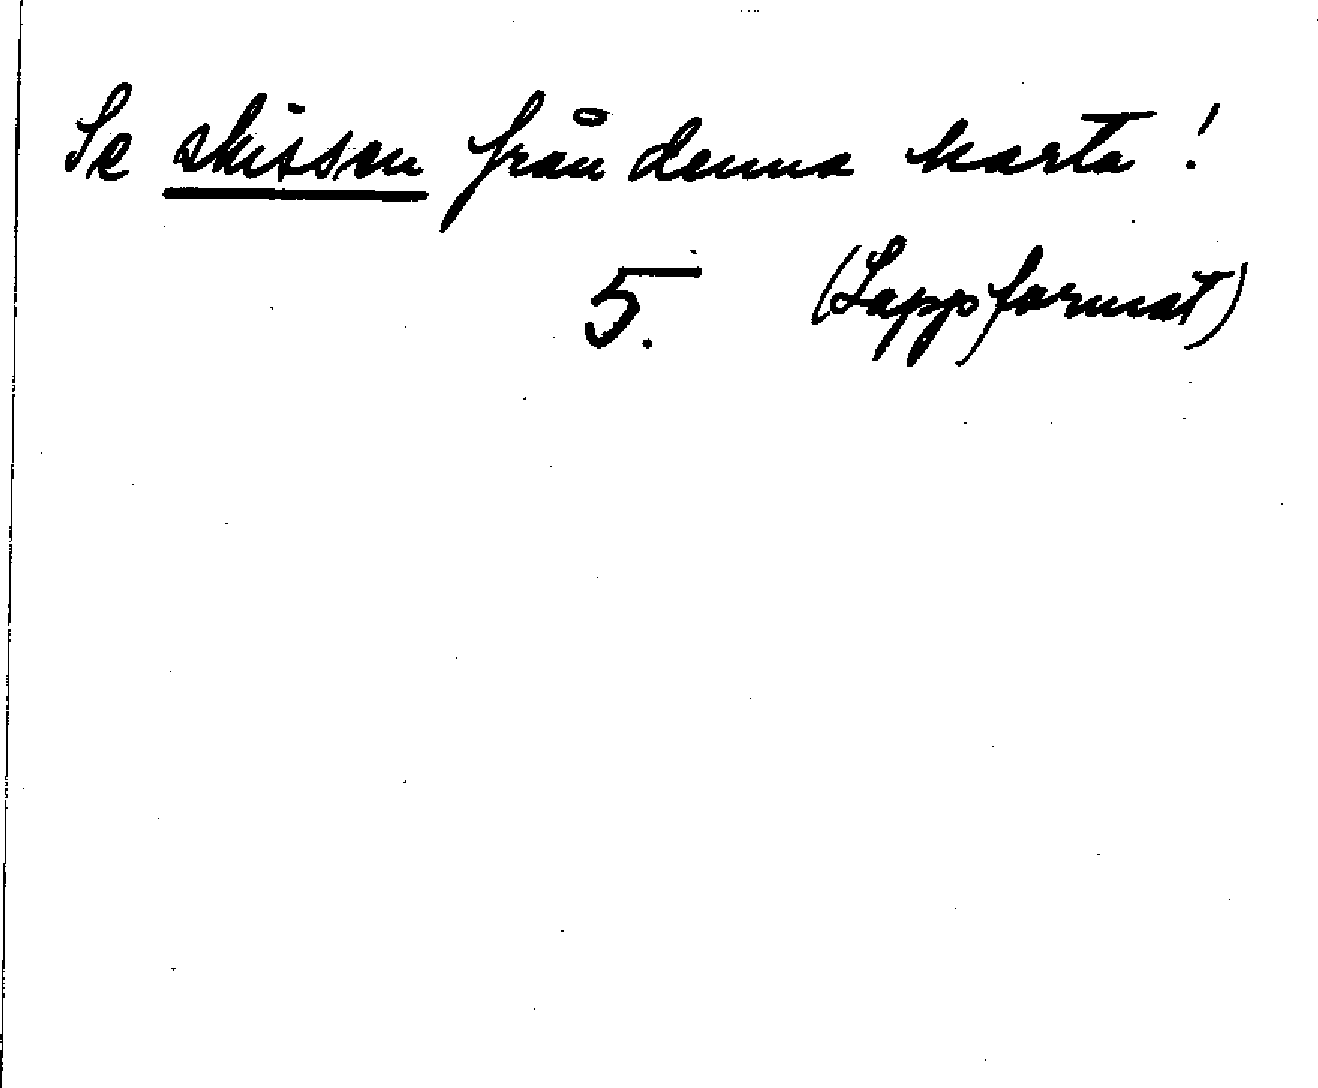 Se skissen från denna karta!
5. (Lappformat)